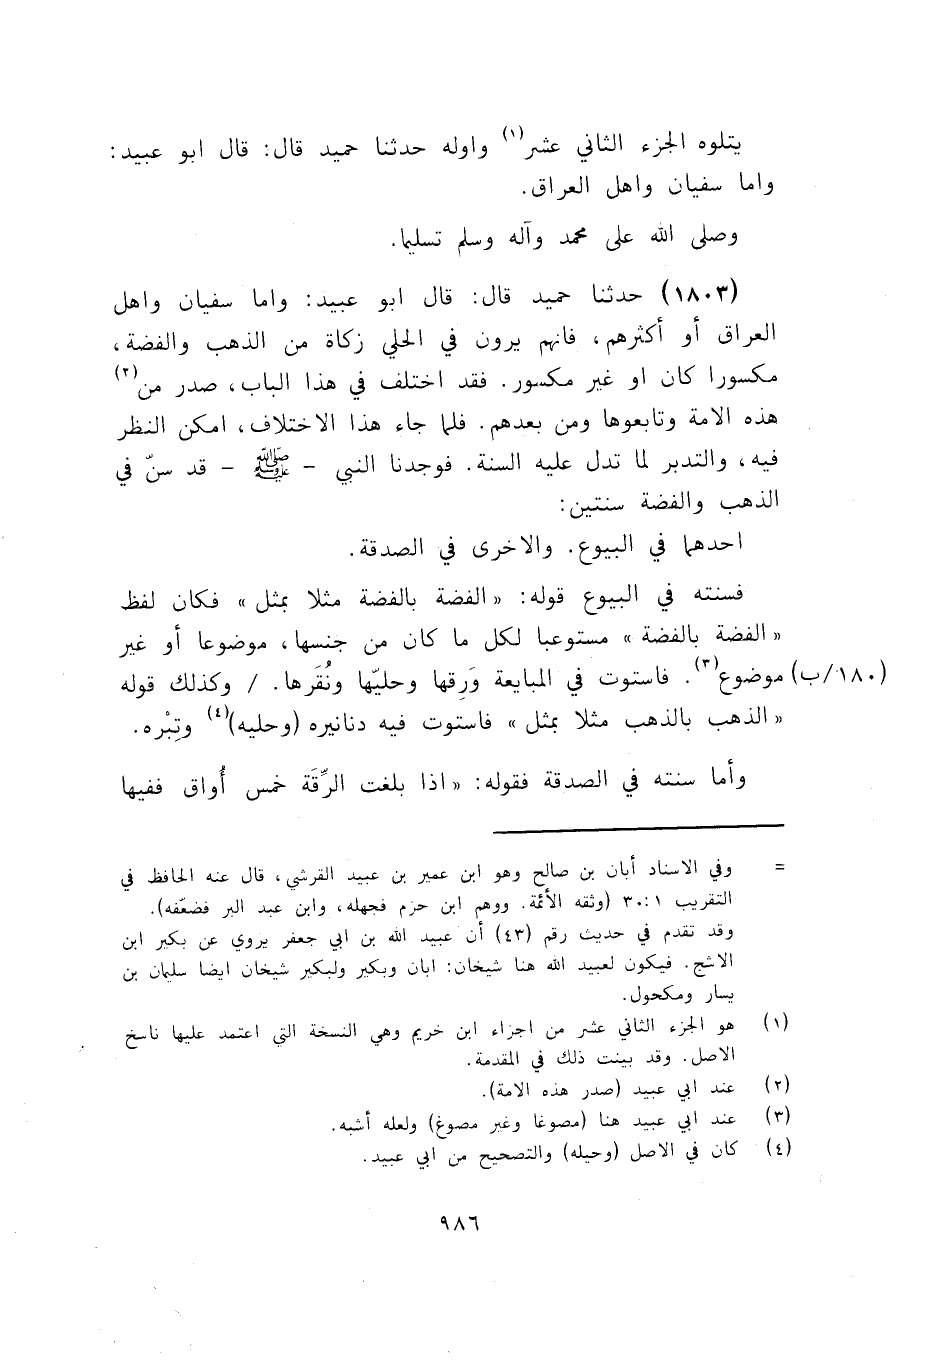 يتلوه الجزء الثاني عشر(١) واوله حدثنا حميد قال: قال ابو عبيد:
واما سفيان واهل العراق.
وصلى الله على محمد وآله وسلم تسليما.
(١٨٠٣) حدثنا حميد قال: قال ابو عبيد: واما سفيان واهل
العراق أو أكثرهم، فانهم يرون في الحلي زكاة من الذهب والفضة،
مكسورا كان او غير مكسور. فقد اختلف في هذا الباب، صدر من(٢)
هذه الامة وتابعوها ومن بعدهم. فلما جاء هذا الاختلاف، امكن النظر
فيه، والتدبر لما تدل عليه السنة. فوجدنا النبي - ﷺ - قد سنّ في
الذهب والفضة سنتين:
احدهما في البيوع. والاخرى في الصدقة.
فسنته في البيوع قوله: « الفضة بالفضة مثلا بمثل » فكان لفظ
« الفضة بالفضة » مستوعبا لكل ما كان من جنسها، موضوعا أو غير
(١٨٠/ب) موضوع(٣). فاستوت في المبايعة وَرِقها وحليّها ونُقَرها. / وكذلك قوله
« الذهب بالذهب مثلا بمثل » فاستوت فيه دنانيره (وحليه)(٤) وتِبْره.
وأما سنته في الصدقة فقوله: « اذا بلغت الرِّقَة خمس أُواق ففيها
= وفي الاسناد أبان بن صالح وهو ابن عمير بن عبيد القرشي، قال عنه الحافظ في
التقريب ١:‏٣٠ (وثقه الأئمة. ووهم ابن حزم فجهله، وابن عبد البر فضعّفه).
وقد تقدم في حديث رقم (٤٣) أن عبيد الله بن ابي جعفر يروي عن بكير ابن
الاشج. فيكون لعبيد الله هنا شيخان: ابان وبكير ولبكير شيخان ايضا سليمان بن
يسار ومكحول.
(١) هو الجزء الثاني عشر من اجزاء ابن خريم وهي النسخة التي اعتمد عليها ناسخ
الاصل. وقد بينت ذلك في المقدمة.
(٢) عند ابي عبيد (صدر هذه الامة).
(٣) عند ابي عبيد هنا (مصوغا وغير مصوغ) ولعله أشبه.
(٤) كان في الاصل (وحيله) والتصحيح من ابي عبيد.
٩٨٦